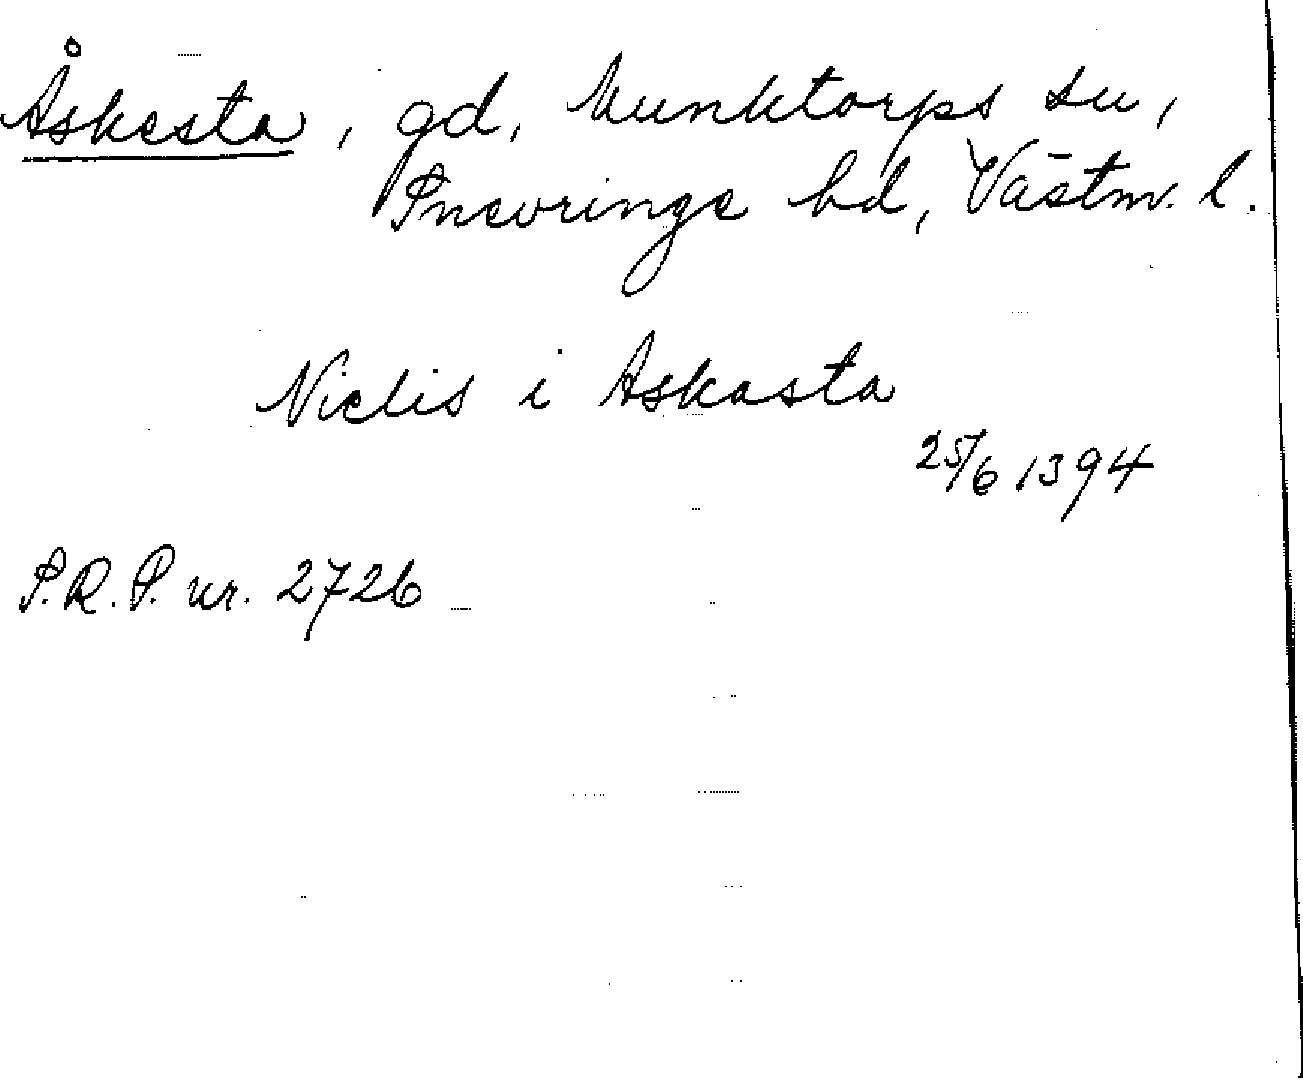 Åskesta, gd, Munktorps sn,
Snevringe hd, Västm. l.
Niclis i Askasta
25/6 1394
S.R.P. nr. 2726